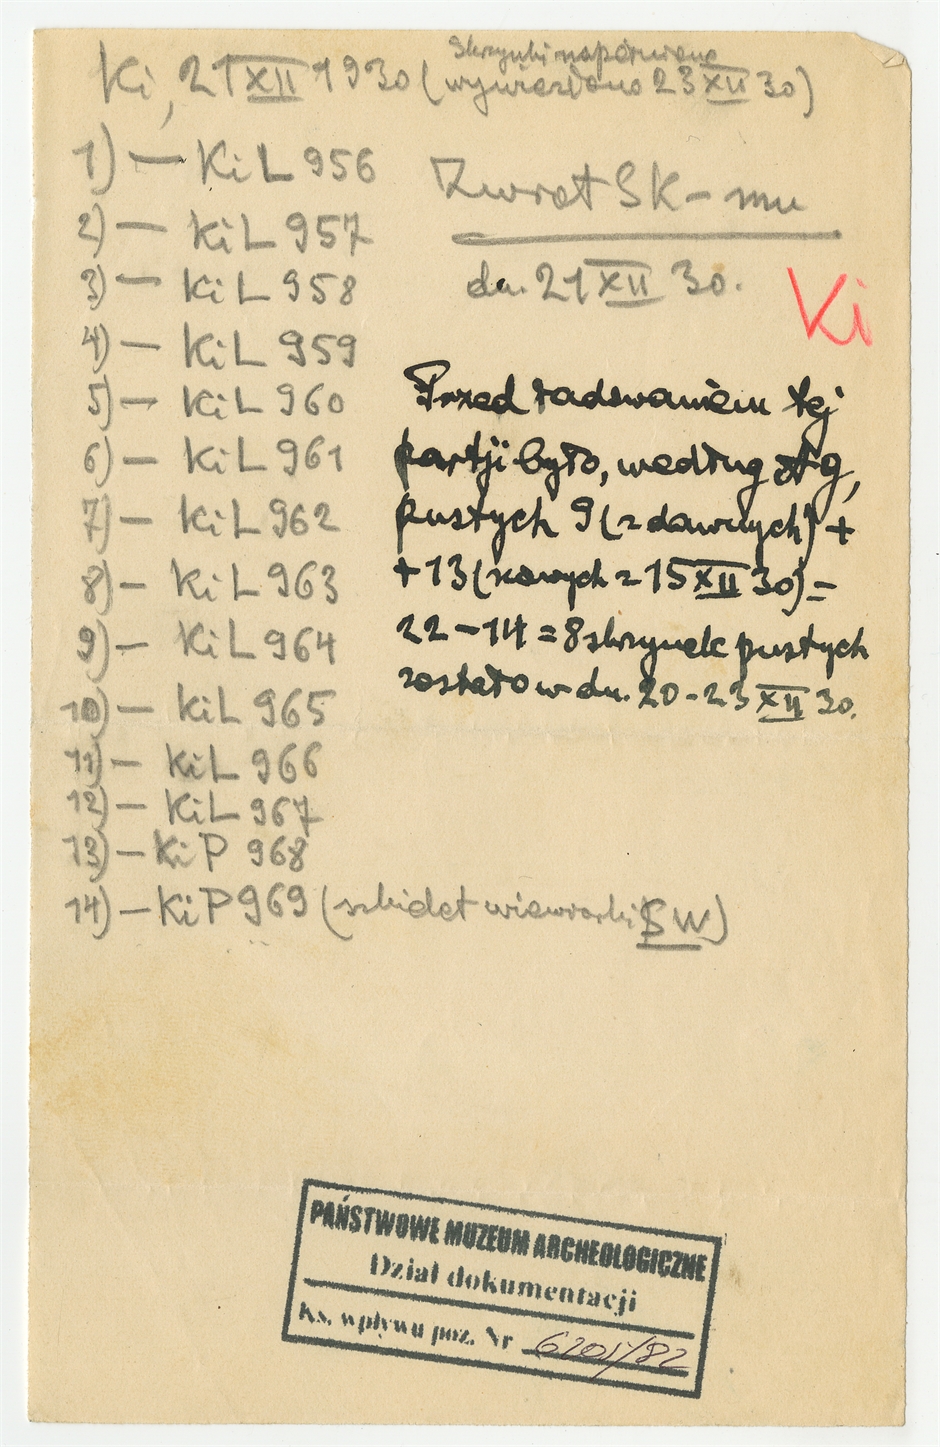 Skrzynki napełniono
Ki, 21 XII 1930 (wywieziono 23 XII 30)
1) — KiL 956
2) — KiL 957
3) — KiL 958
4) — KiL 959
5) — KiL 960
6) — KiL 961
7) — KiL 962
8) — KiL 963
9) — KiL 964
10) — KiL 965
11) — KiL 966
12) — KiL 967
13) — KiP 968
14) — KiP 969 (szkielet wiewiórki SW)
Zwrot SK-mu
dn. 21 XII 30.
Ki
Przed ładowaniem tej
partji było, według Ag,
pustych 9 (z dawnych) +
+ 13 (nowych z 15 XII 30) =
22 - 14 = 8 skrzynek pustych
zostało w dn. 20-23 XII 30.
PAŃSTWOWE MUZEUM ARCHEOLOGICZNE
Dział dokumentacji
Ks. wpływu poz. Nr 6201/82